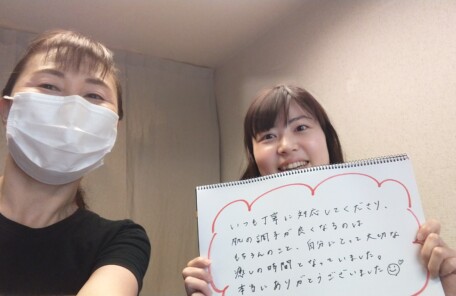 いつも丁寧に対応してくださり、
肌の調子が良くなるのは
もちろんのこと、自分にとって大切な
癒しの時間となっていました。
本当にありがとうございました